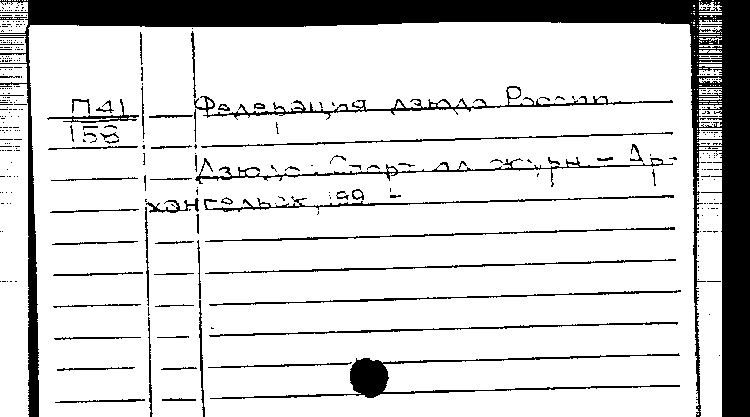 П41 Федерация дзюдо России.
158
Дзюдо: Спорт. ил. журн. – Ар-
хангельск, 199 -